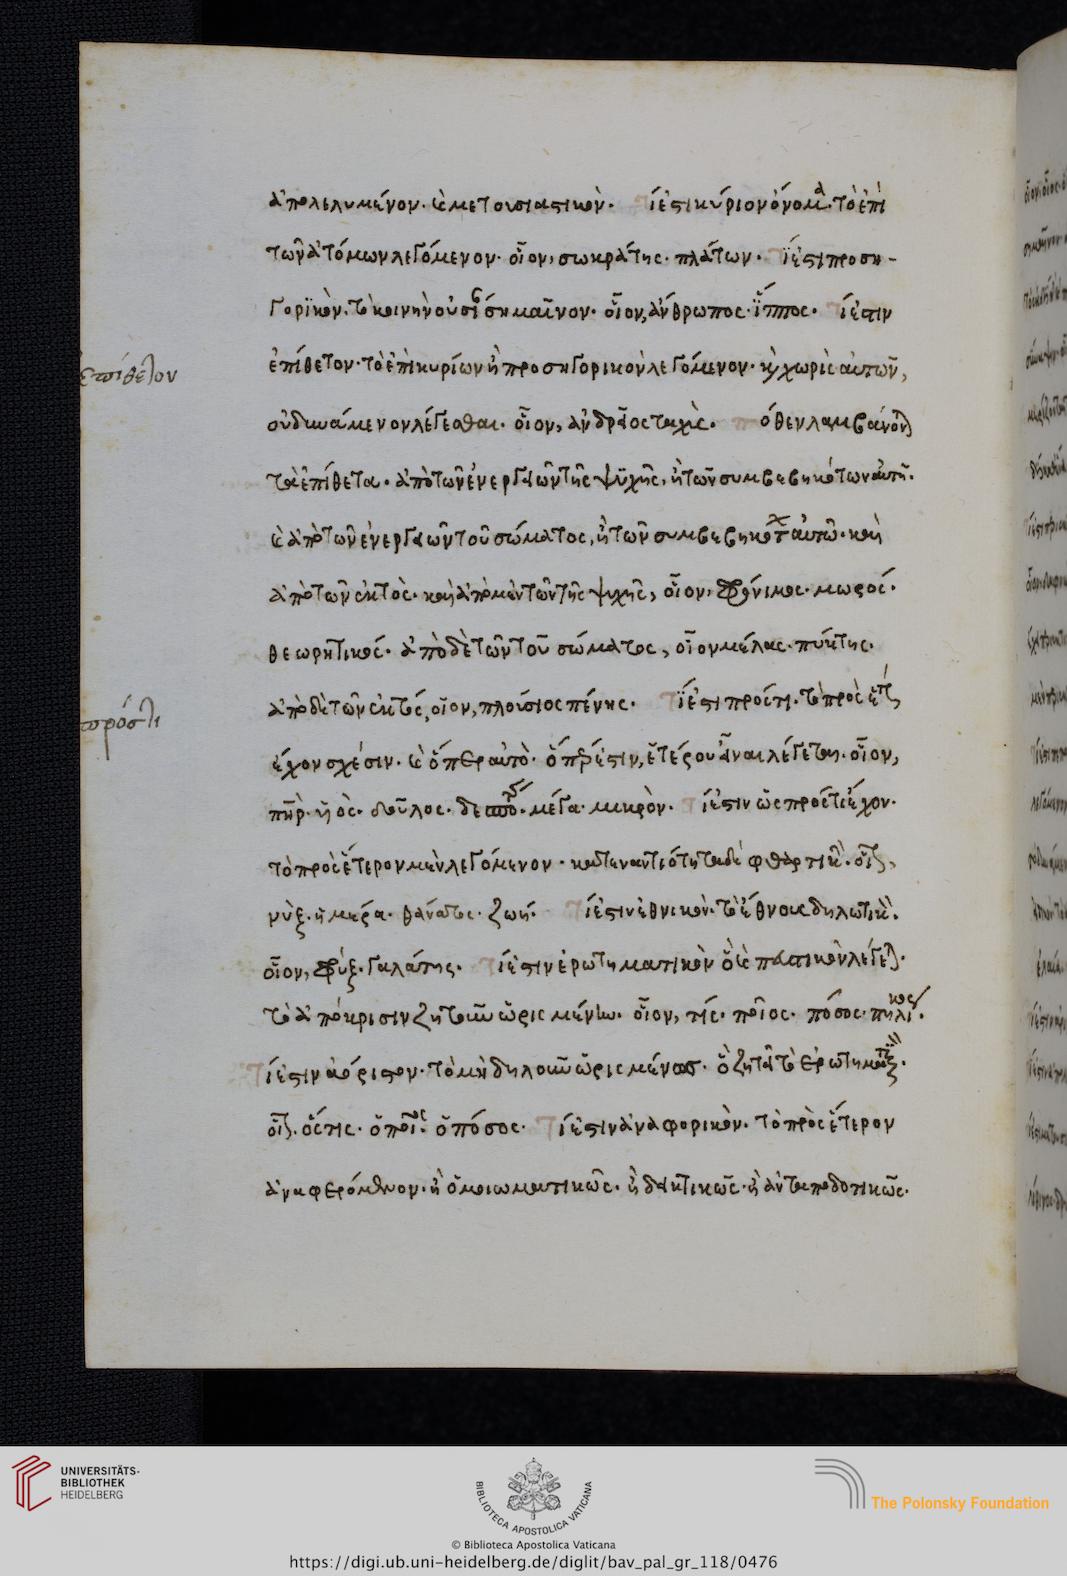 ἀπολελυμένον. καὶ μετουσιαστικὸν. Τί ἐστι κύριον ὄνομα. τὸ ἐπὶ
τῶν ἀτόμων λεγόμενον. οἷον, σωκράτης. πλάτων. Τί ἐστι προση-
γορϊκὸν. τὸ κοινὴν οὐσίαν σημαῖνον. οἷον, ἄνθρωπος. ἵππος. Τί ἐστιν
ἐπίθετον
ἐπίθετον. τὸ ἐπὶ κυρίων ἢ προσηγορικὸν λεγόμενον. καὶ χωρὶς αὐτῶν,
οὐ δυνάμενον λέγεσθαι. οἷον, ἀνδρεῖος ταχὺς. Πόθεν λαμβάνονται
τὰ ἐπίθετα. ἀπὸ τῶν ἐνεργειῶν τῆς ψυχῆς, ἢ τῶν συμβεβηκότων αὐτῇ.
καὶ ἀπὸ τῶν ἐνεργειῶν τοῦ σώματος, ἢ τῶν συμβεβηκότων αὐτῶ. καὶ
ἀπὸ τῶν ἐκτὸς. καὶ ἀπὸ μὲν τῶν τῆς ψυχῆς, οἷον, φρόνιμος. μωρός.
θεωρητικός. ἀπὸ δὲ τῶν τοῦ σώματος, οἷον μέλας. πύκτης.
πρόστι
ἀπὸ δὲ τῶν ἐκτός, οἷον, πλούσιος πένης. Τί ἐστι πρόςτι. τὸ πρὸς ἕτερον
ἔχον σχέσιν. καὶ ὅπερ αὐτὸ. ὅπερ ἐστὶν, ἑτέρου εἶναι λέγεται. οἷον,
πατὴρ. υἱὸς. δοῦλος. δεσπότης. μέγα. μικρὸν. Τί ἐστιν ὡς πρόςτι ἔχον.
τὸ πρὸς ἕτερον μὲν λεγόμενον. κατ' ἐναντιότητα δὲ φθαρτικὸν. οἷον,
νὺξ. ἡμέρα. θάνατος. ζωή. Τί ἐστιν ἐθνικὸν. τὸ ἔθνους δηλωτικὸν.
οἷον, φρύξ. γαλάτης. Τί ἐστιν ἐρωτηματικὸν ὃ καὶ πευστικὸν λέγεται.
τὸ ἀπόκρισιν ζητοῦν ὡρισμένην. οἷον, τίς. ποῖος. πόσος. πηλίκος.
Τί ἐστιν ἀόριστον. τὸ μὴ δηλοῦν ὡρισμένως. ὃ ζητεῖ τὸ ἐρωτηματικὸν.
οἷον. ὅστις. ὁποῖος. ὁπόσος. Τί ἐστιν ἀναφορικὸν. τὸ πρὸς ἕτερον
ἀναφερόμενον. ἢ ὁμοιωματικῶς. ἢ δεικτικῶς. ἢ ἀνταποδοτικῶς.
UNIVERSITÄTS-
BIBLIOTHEK
HEIDELBERG
BIBLIOTECA APOSTOLICA VATICANA
The Polonsky Foundation
© Biblioteca Apostolica Vaticana
https://digi.ub.uni-heidelberg.de/diglit/bav_pal_gr_118/0476